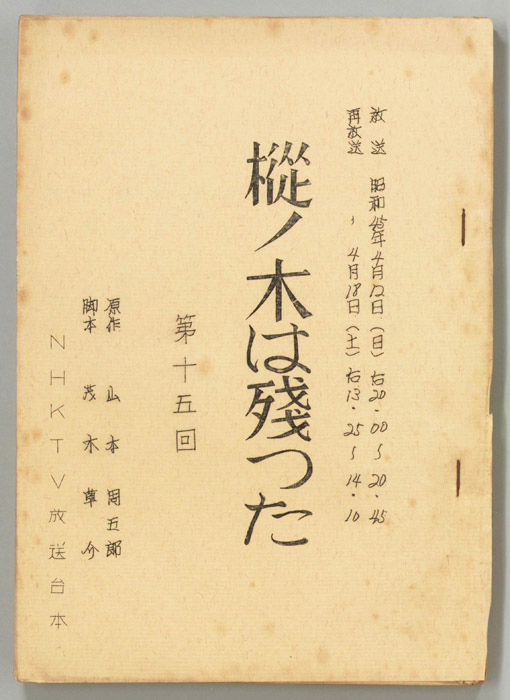 放送　昭和45年4月12日（日）右20・00～20・45
再放送　〃　4月18日（土）右13・25～14・10
樅ノ木は残つた
第十五回
原作　山本周五郎
脚本　茂木草介
NHKTV放送台本